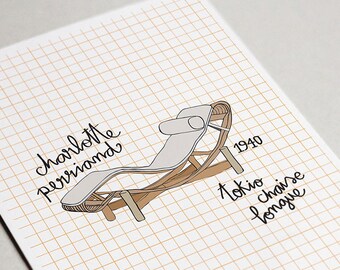 charlotte
perriand
1940
tokio
chaise
longue